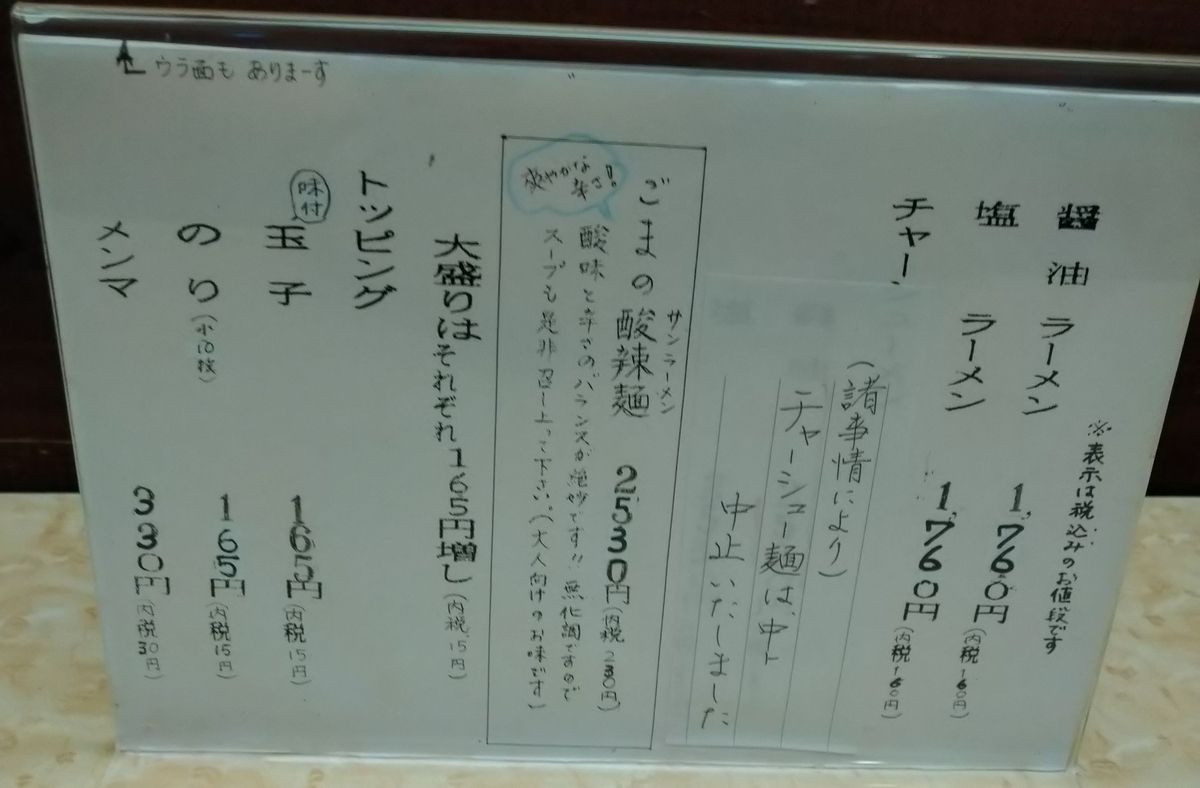 ※表示は税込みのお値段です
醤油ラーメン 1,760円(内税160円)
塩ラーメン 1,760円(内税160円)
チャー
(諸事情により)
チャーシュー麺は、中ト
中止いたしました
サンラーメン
ごまの酸辣麺 2530円(内税230円)
爽やかな
辛さ!。
酸味と辛さのバランスが絶妙です!!無化調ですので
スープも是非召し上って下さい。(大人向けのお味です)
大盛りはそれぞれ165円増し(内税15円)
トッピング
味付
玉子 165円(内税15円)
のり(小10枚) 165円(内税15円)
メンマ 330円(内税30円)
ウラ面も ありまーす